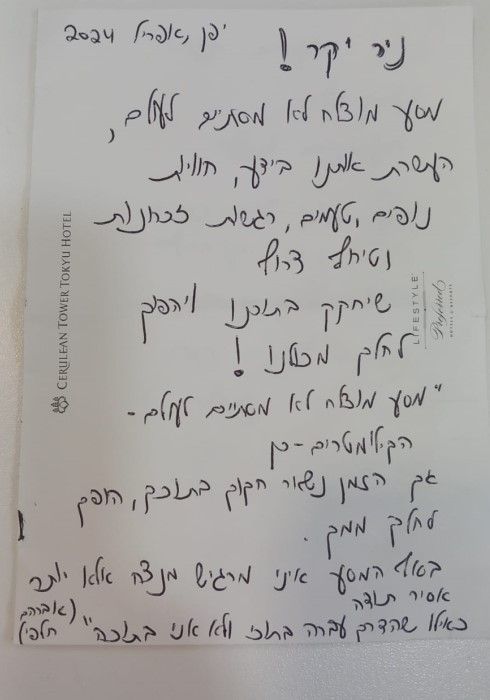 יפן, אפריל 2024
ניר יקר!
מסע מוצלח לא מסתיים לעולם,
העשרת אותנו בידע, חוויות
נופים, טעמים, רגשות זכרונות
וטיול
שיחקק בתוכנו ויהפוך
לחלק מכולנו!
"מסע מוצלח לא מסתיים לעולם -
הקילומטרים - כן
אך הזמן נשאר חקוק בתוכך, הופך
לחלק ממך.
בסוף המסע איני מרגיש מנצח אלא יותר
אסיר תודה
כאילו שהדרך עברה בתוכי ולא אני בתוכה" (אברהם חלפי)
CERULEAN TOWER TOKYU HOTEL
LIFESTYLE
Preferred
HOTELS & RESORTS